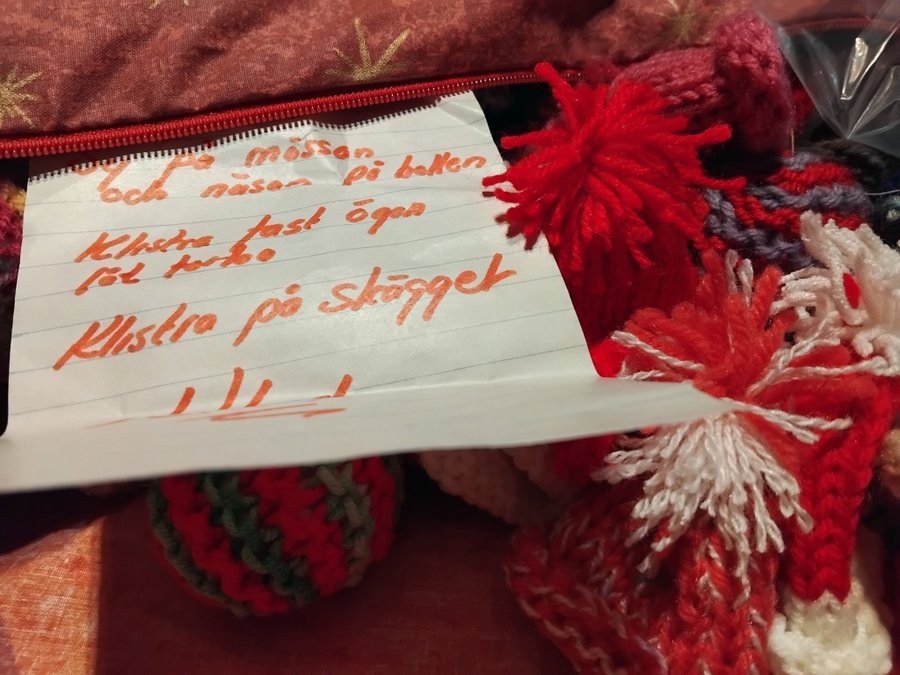 Sy på mössan
och näsan på bollen
Klistra fast ögon
låt torka
Klistra på skägget